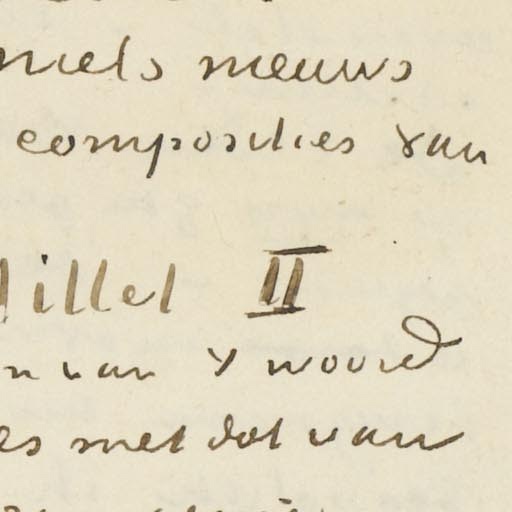 niets nieuws
composities van
Millet II
n van 't woord
es met dat van